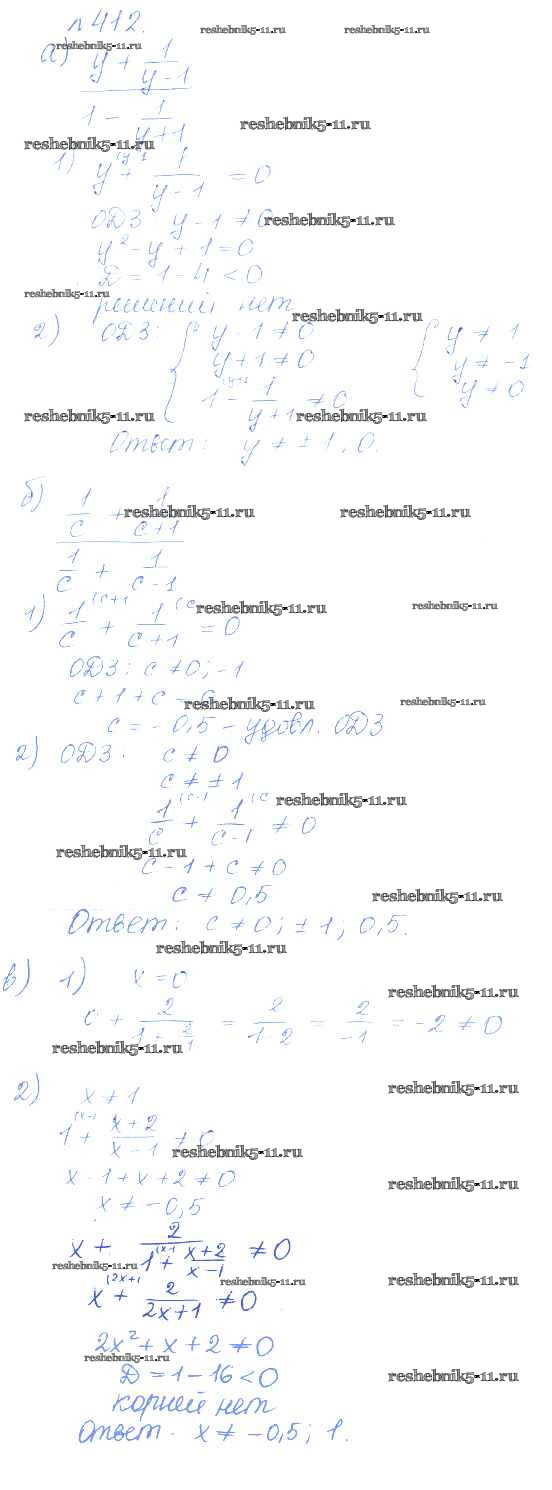 №412.
reshebnik5-11.ru reshebnik5-11.ru
reshebnik5-11.ru
а) y + 1/(y - 1)
1 - 1/(y + 1)
reshebnik5-11.ru
reshebnik5-11.ru
1) y + 1/(y - 1) = 0
ОДЗ y - 1 ≠ 0
reshebnik5-11.ru
y² - y + 1 = 0
D = 1 - 4 < 0
reshebnik5-11.ru
решений нет
reshebnik5-11.ru
2) ОДЗ: { y - 1 ≠ 0 { y ≠ 1
y + 1 ≠ 0 y ≠ -1
1 - 1/(y + 1) ≠ 0 y ≠ 0
reshebnik5-11.ru reshebnik5-11.ru
Ответ: y ≠ ± 1, 0.
б) 1/c + 1/(c + 1)
reshebnik5-11.ru reshebnik5-11.ru
1/c + 1/(c - 1)
1) 1/c + 1/(c + 1) = 0
reshebnik5-11.ru reshebnik5-11.ru
ОДЗ: c ≠ 0; -1
c + 1 + c =
reshebnik5-11.ru reshebnik5-11.ru
c = - 0,5 - удовл. ОДЗ
2) ОДЗ: c ≠ 0
c ≠ ± 1
reshebnik5-11.ru
1/c + 1/(c - 1) ≠ 0
reshebnik5-11.ru
c - 1 + c ≠ 0
c ≠ 0,5
reshebnik5-11.ru
Ответ: c ≠ 0; ± 1; 0,5.
reshebnik5-11.ru
в) 1) x = 0
reshebnik5-11.ru
= 2/(1-2) = 2/-1 = -2 ≠ 0
reshebnik5-11.ru
2) x ≠ 1
reshebnik5-11.ru
1 + (x + 2)/(x - 1) ≠ 0
reshebnik5-11.ru
x - 1 + x + 2 ≠ 0
reshebnik5-11.ru
x ≠ -0,5
x + 2/(1 + (x+2)/(x-1)) ≠ 0
reshebnik5-11.ru
reshebnik5-11.ru reshebnik5-11.ru
x + 2/(2x+1) ≠ 0
2x² + x + 2 ≠ 0
reshebnik5-11.ru
D = 1 - 16 < 0
reshebnik5-11.ru
корней нет
Ответ. x ≠ -0,5; 1.